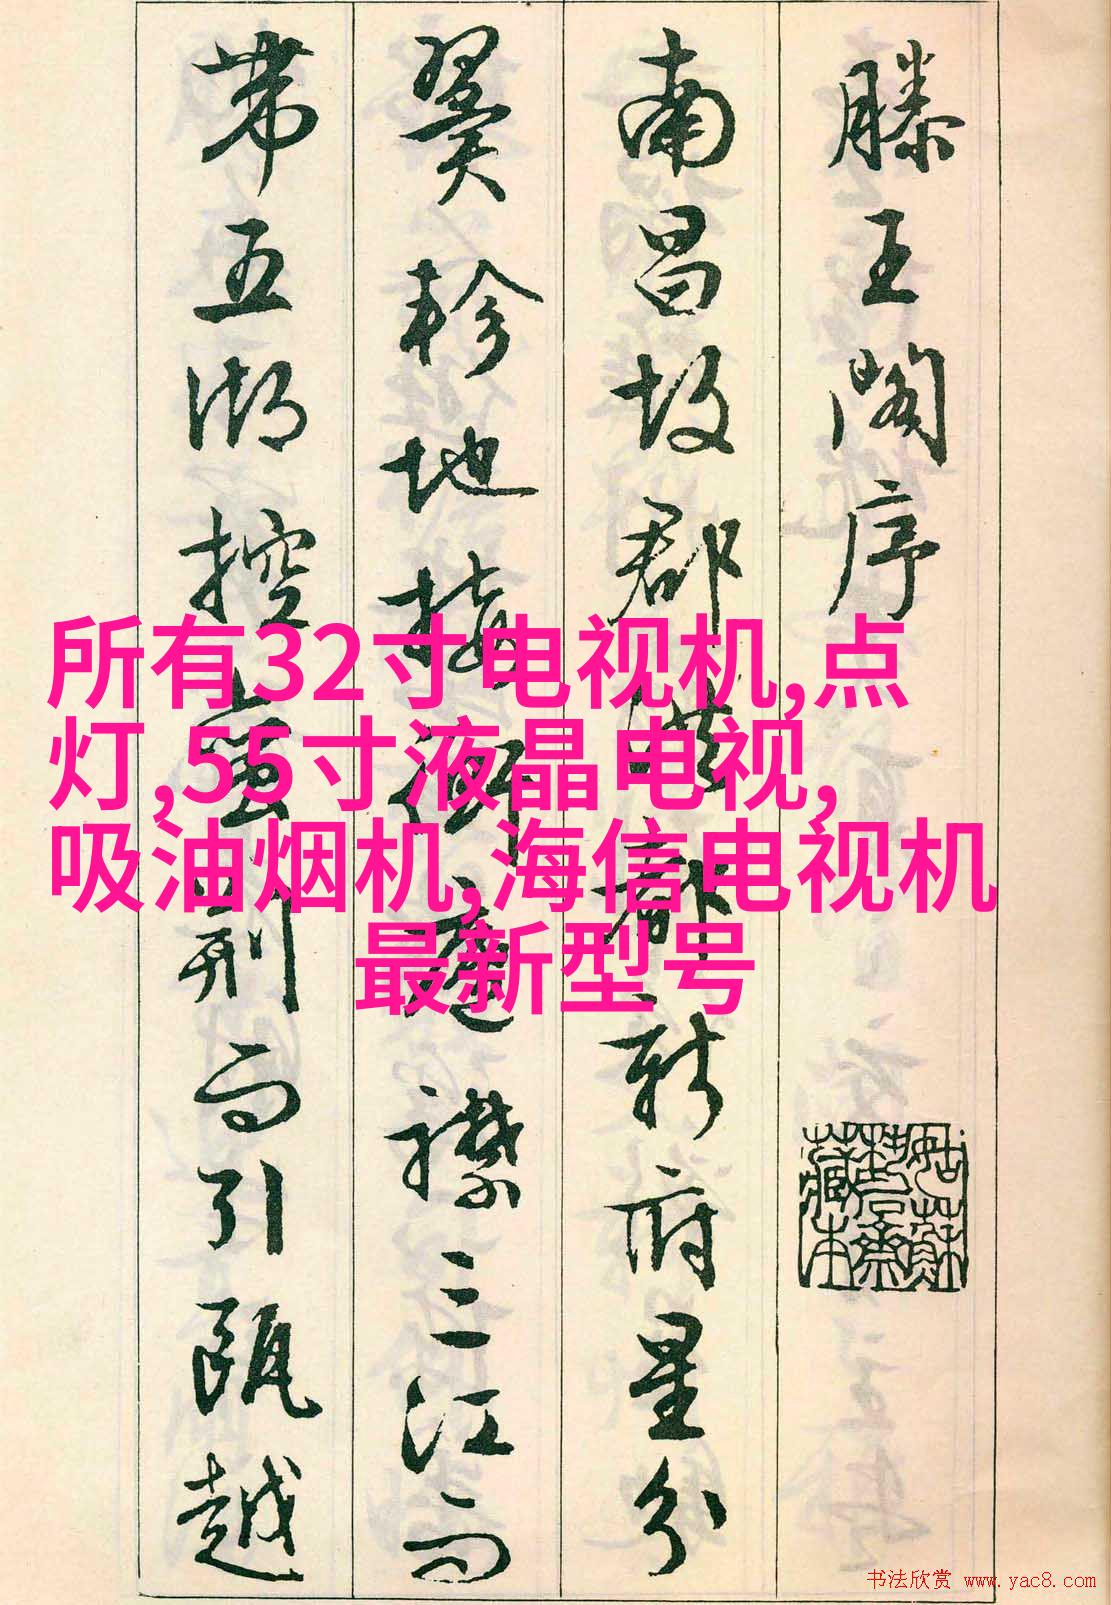 滕王阁序
南昌故郡洪都新府星分
翼轸地接衡庐襟三江而
带五湖控蛮荆而引瓯越
所有32寸电视机,点
灯,55寸液晶电视,
吸油烟机,海信电视机
最新型号
书法欣赏 www.yac8.com